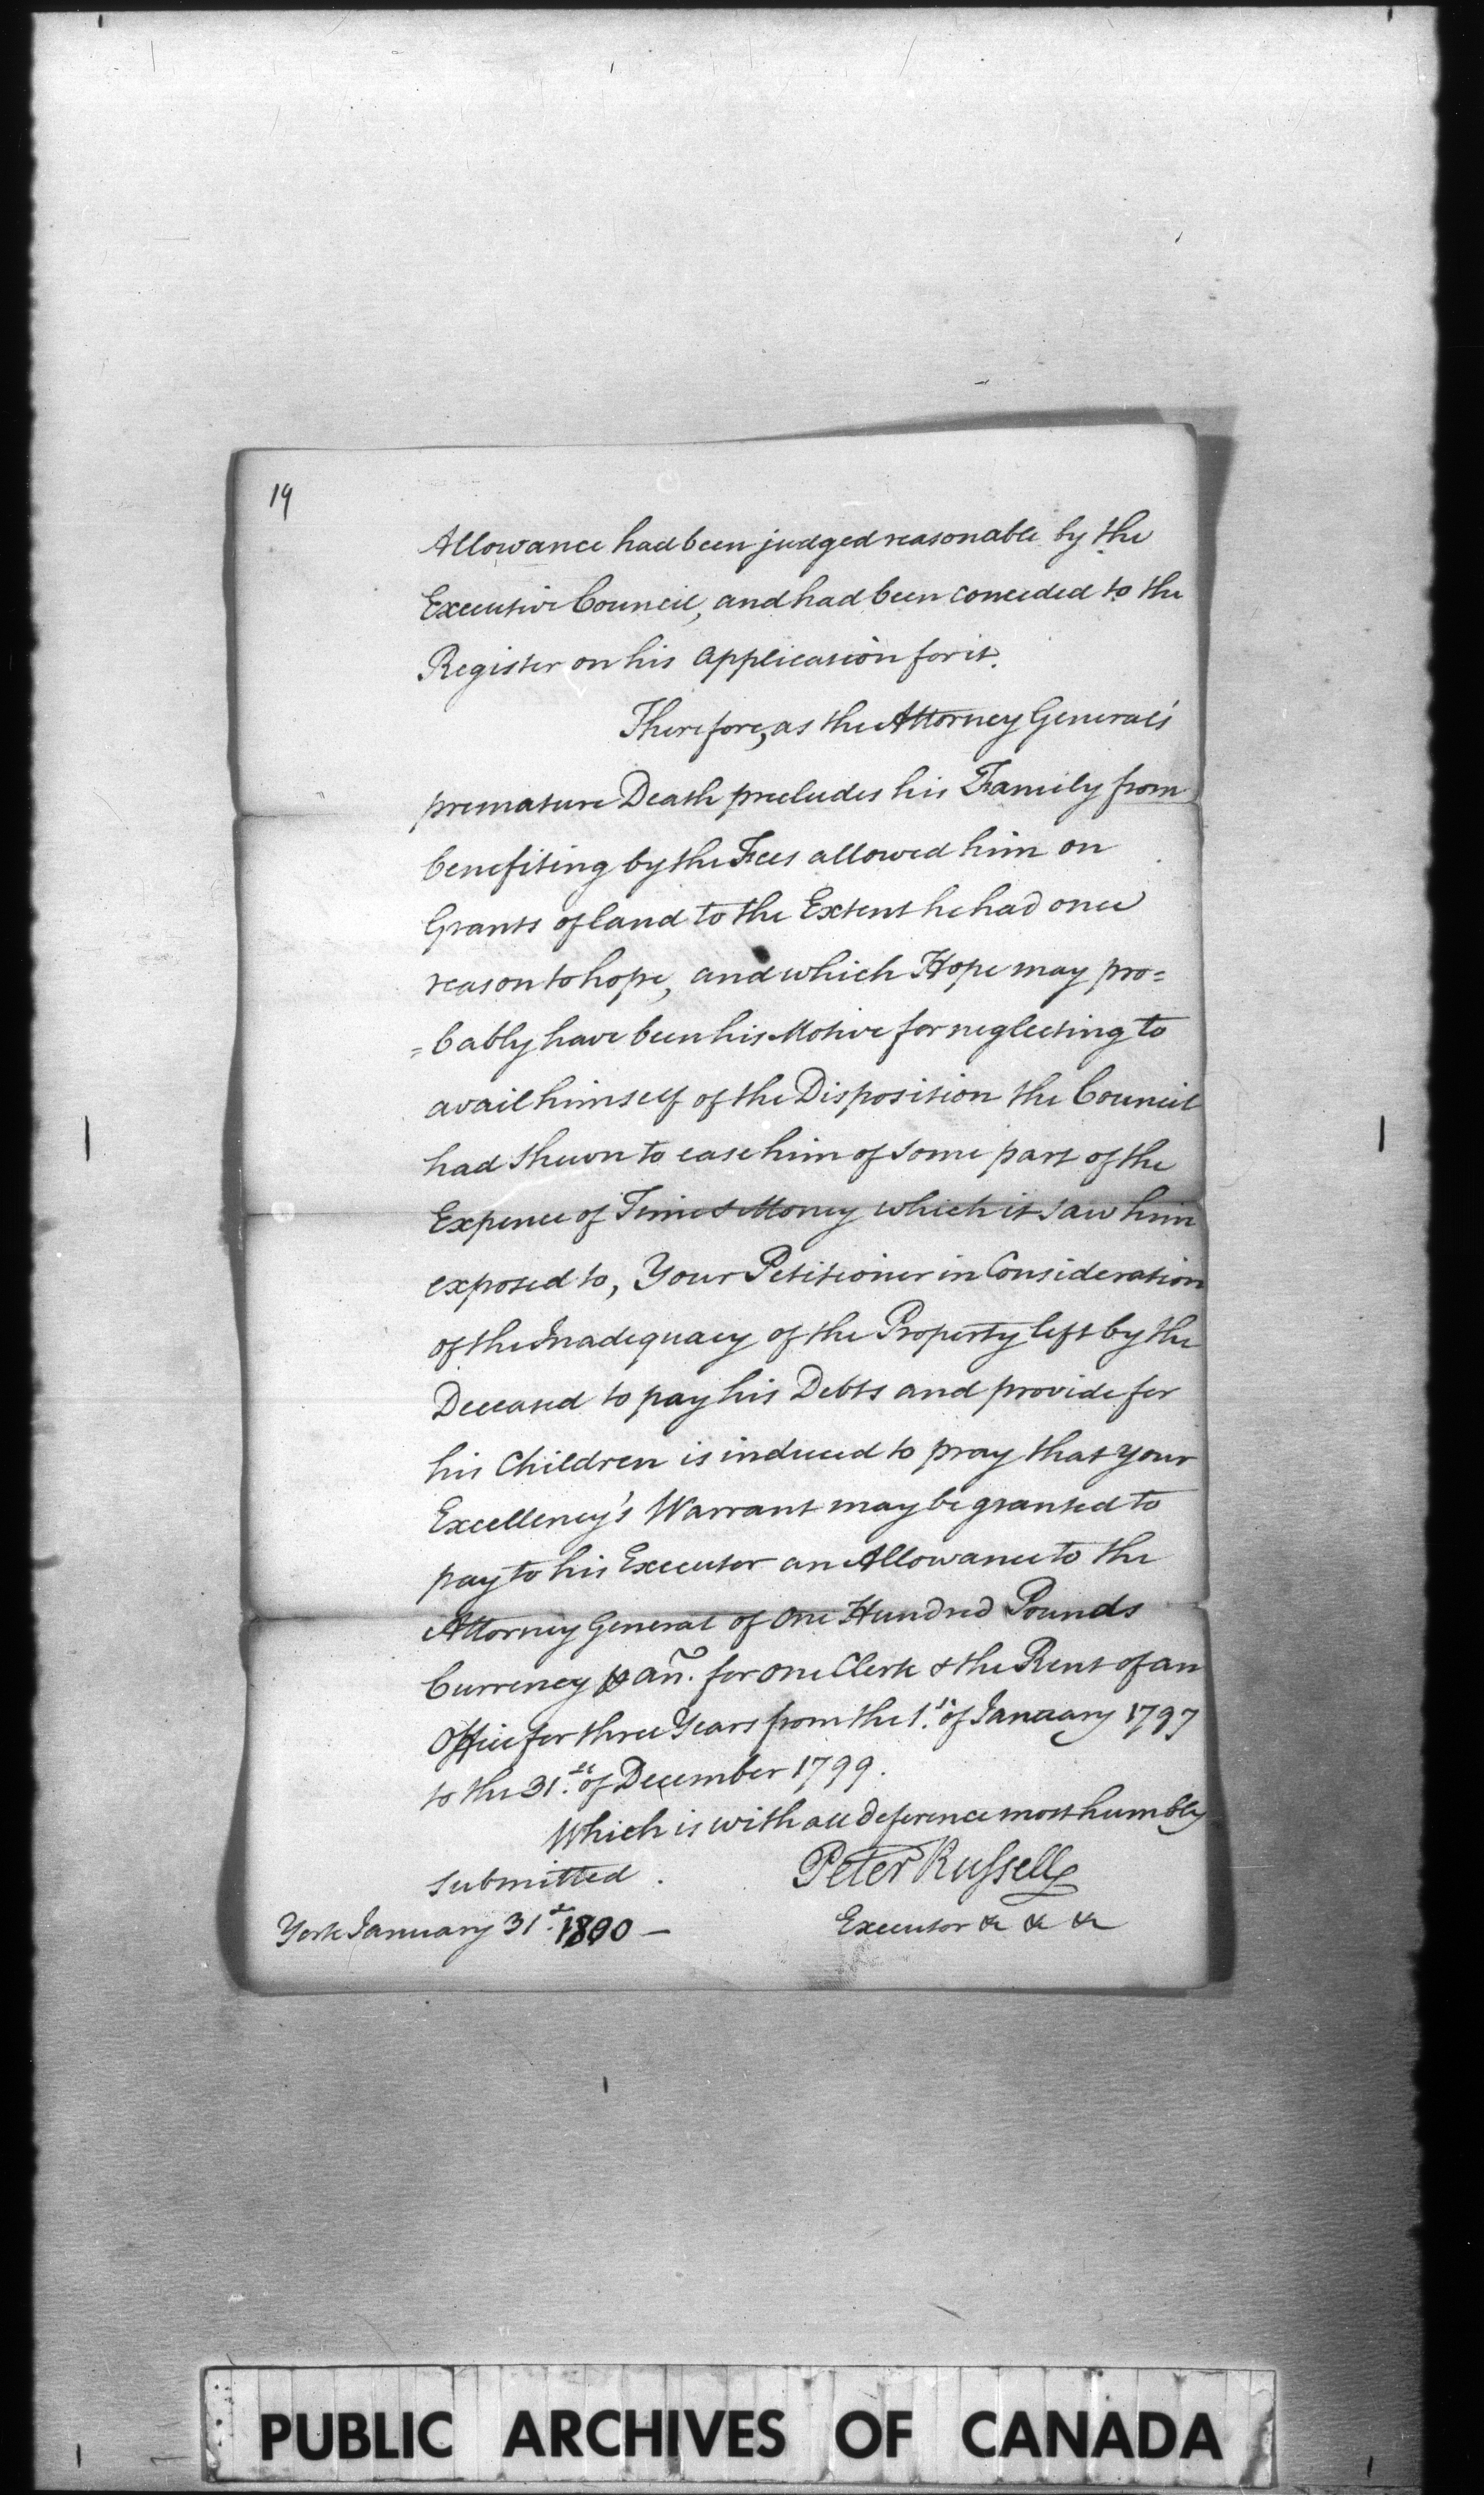 19
Allowance had been judged reasonable by the
Executive Council, and had been conceded to the
Register on his Application for it.
Therefore, as the Attorney General's
premature Death precludes his Family from
benefiting by the Fees allowed him on
Grants of land to the Extent he had once
reason to hope, and which Hope may pro=
=bably have been his Motive for neglecting to
avail himself of the Disposition the Council
had shewn to ease him of some part of the
Expence of Time & Money which it saw him
exposed to, Your Petitioner in Consideration
of the Inadequacy of the Property left by the
Deceased to pay his Debts and provide for
his Children is induced to pray that your
Excellency's Warrant may be granted to
pay to his Executor an Allowance to the
Attorney General of One Hundred Pounds
Currency ⅌ an. for one Clerk & the Rent of an
Office for three Years from the 1.st of January 1797
to the 31.st of December 1799.
Which is with all deference most humbly
submitted.
Peter Russell
York January 31.st 1800 —
Executor &c &c &c
PUBLIC ARCHIVES OF CANADA